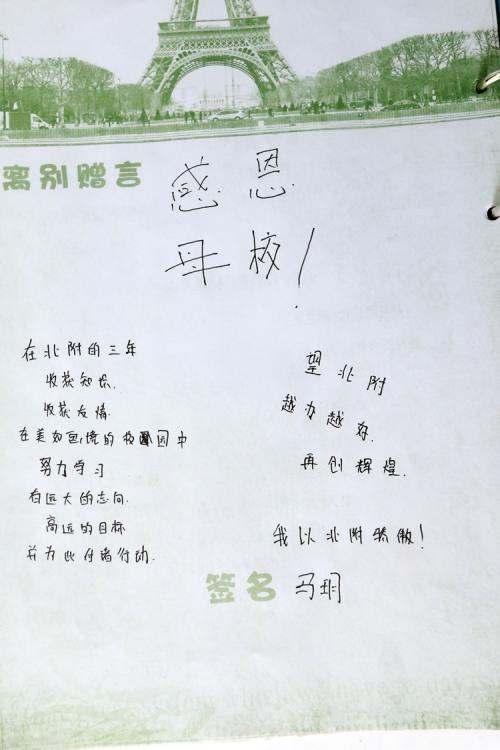 离别赠言
感恩
母校！
在北附的三年
收获知识.
收获友情.
在美如画境的校园中
努力学习
有远大的志向.
高远的目标
并为此付诸行动.
望北附
越办越好.
再创辉煌.
我以北附骄傲！
签名 马玥